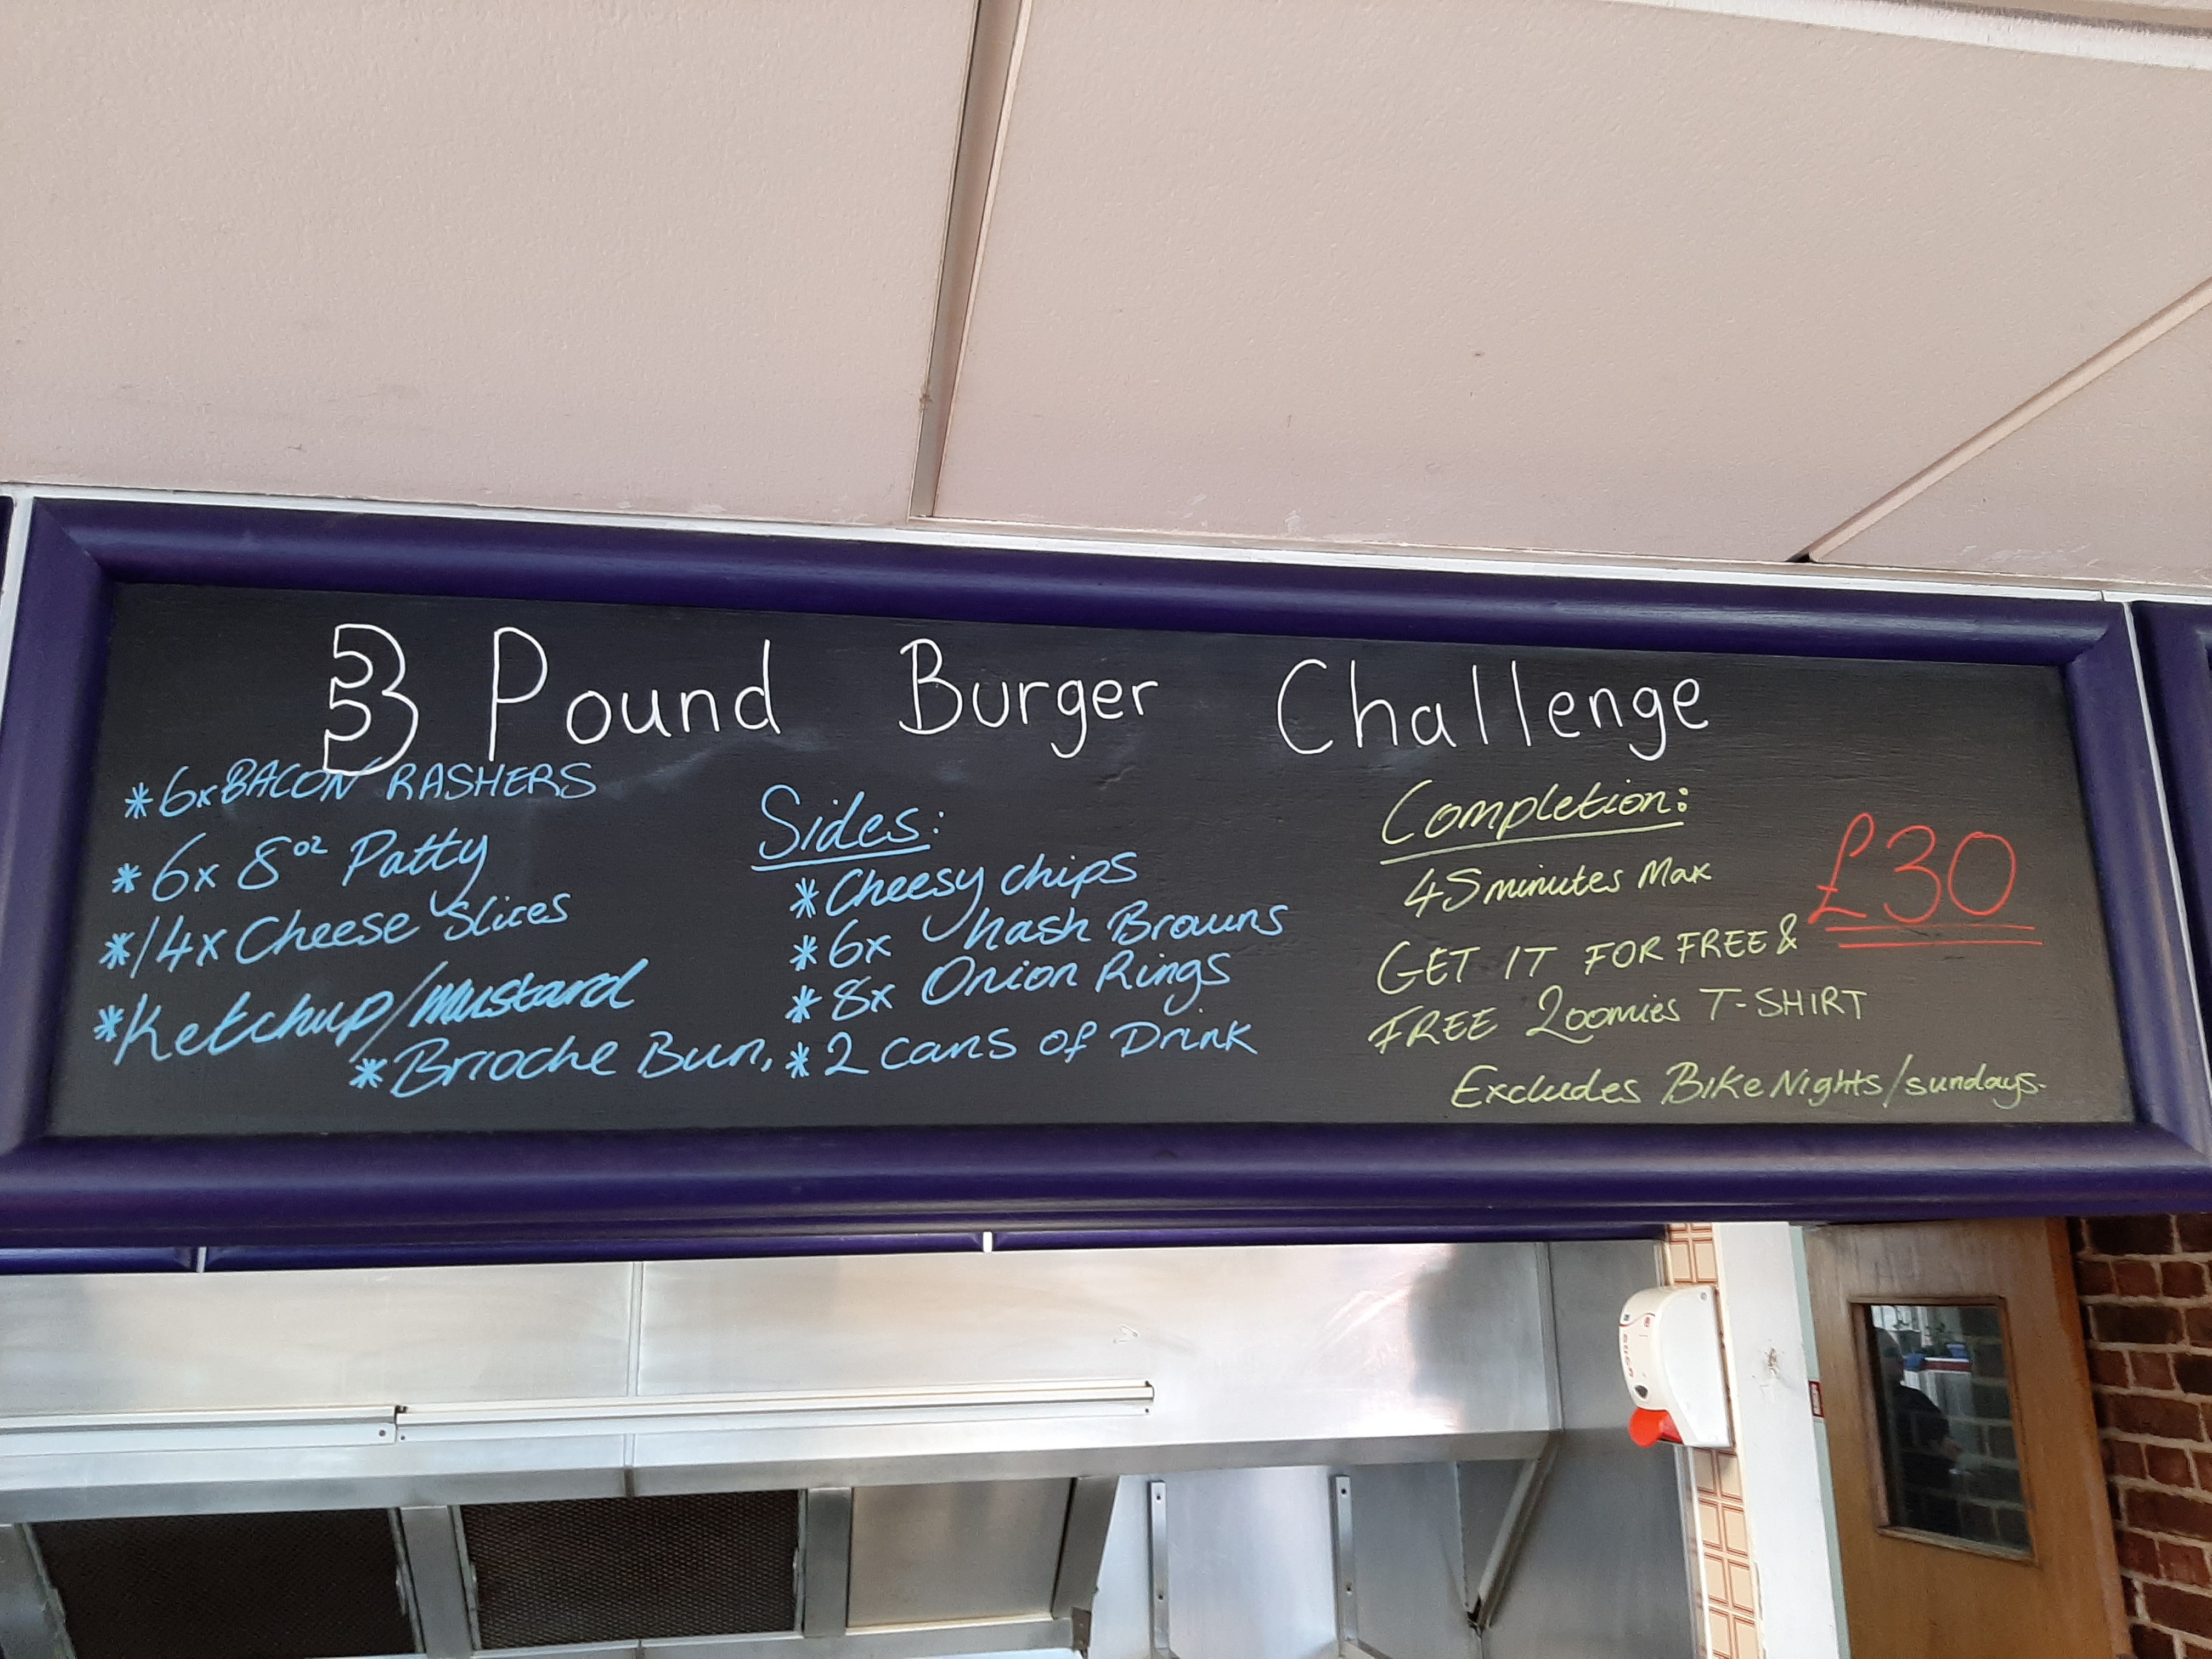 3 Pound Burger Challenge
*6xBACON RASHERS
*6x 8oz Patty
*14x Cheese Slices
*Ketchup/mustard
*Brioche Bun,
Sides:
*Cheesy chips
*6x hash Browns
*8x Onion Rings
*2 cans of Drink
Completion:
45 minutes Max
GET IT FOR FREE &
FREE Zoomies T-SHIRT
Excludes Bike Nights/sundays.
£30